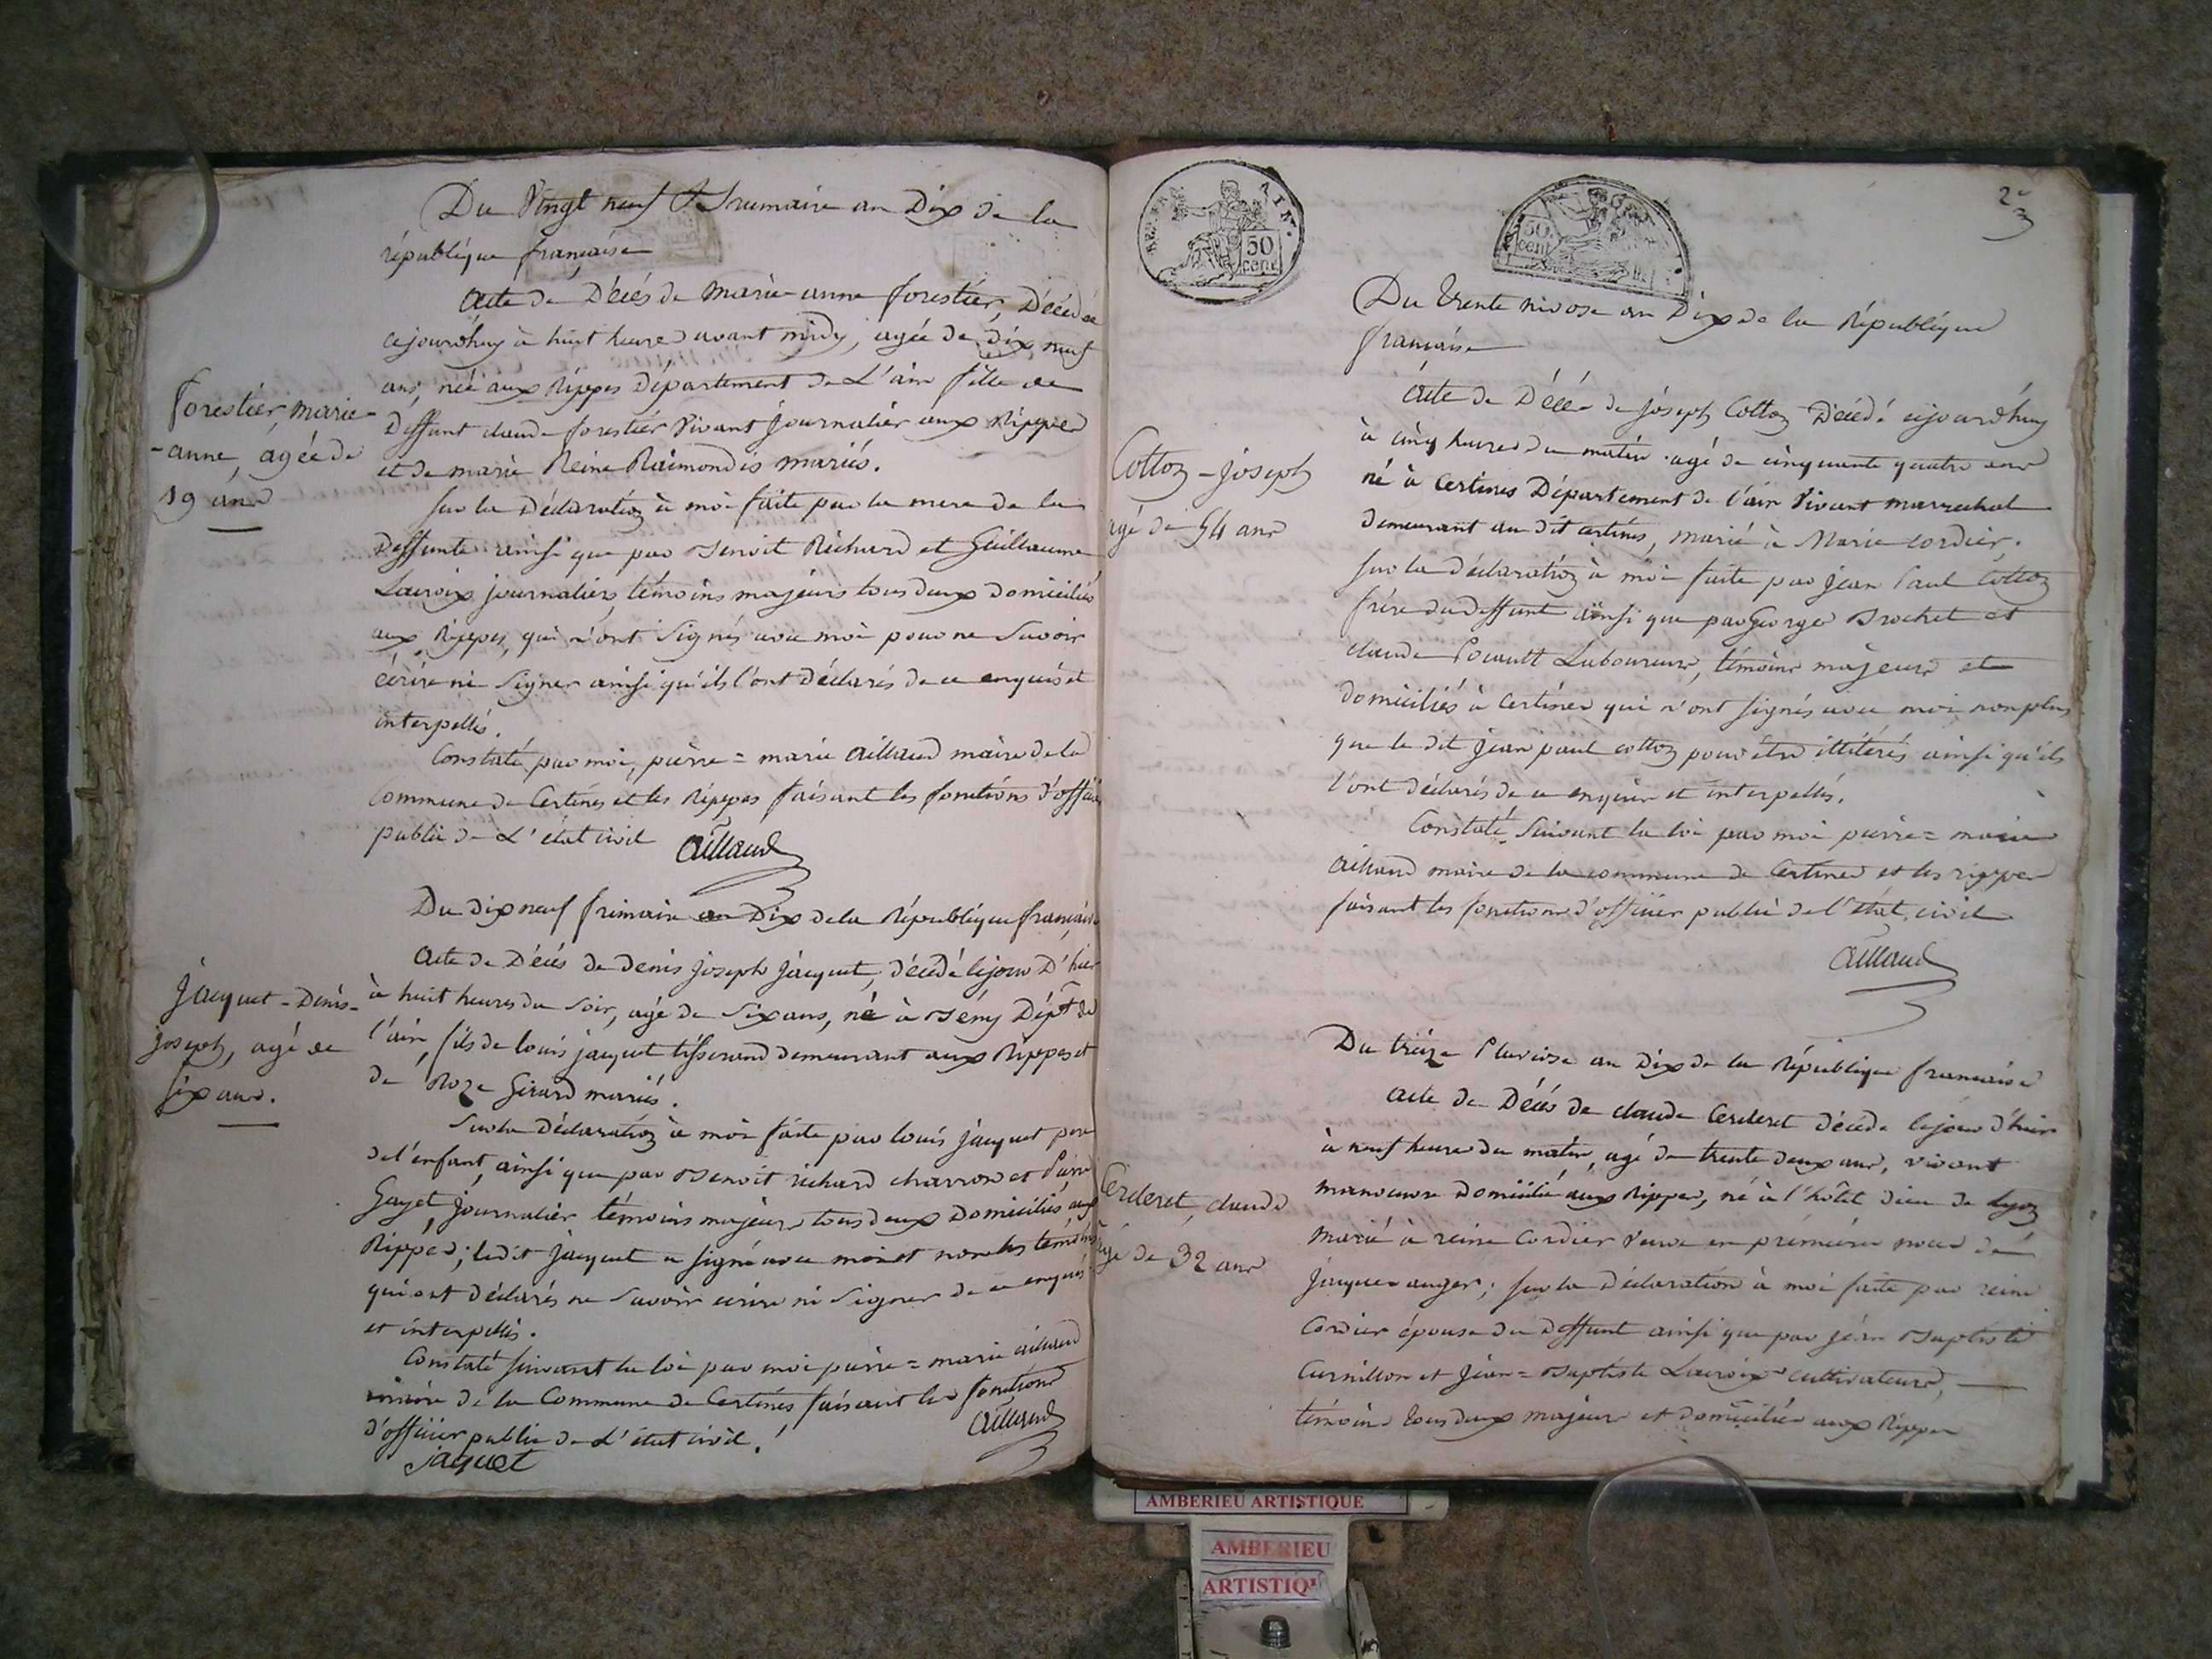 Du Vingt neuf Brumaire an Dix de la
république française
Acte de Décés de marie-anne forestier, Décédée
cejourd'huy à huit heures avant midy, agée de dix neuf
ans, née aux Rippes Département de L'ain fille de
Deffunt claude forestier Vivant Journalier aux Rippes
et de marie Reine Raimondis mariés.
forestier, marie-
-anne, agée de
19 ans
Sur la Déclaration à moi faite par la mere de la
Deffunte ainsi que par Benoit Richard et Guillaume
Lacroix journaliers, témoins majeurs tous deux domiciliés
aux Rippes, qui n'ont Signés avec moi pour ne Savoir
écrire ni Signer ainsi qu'ils l'ont Déclarés de ce enquis et
interpellés.
Constaté par moi, pierre = marie Aillaud maire de la
Commune de Certines et les Rippes faisant les fonctions d'officier
public de L'état civil Aillaud
Du dix neuf frimaire an Dix de la République française
Acte de Décés de denis joseph jacquet, décédé le jour D'hier
à huit heures du Soir, agé de Six ans, né à Bény Dépt de
l'ain, fils de louis jacquet tisserand demeurant aux Rippes et
de Roze Girard mariés.
jacquet - Denis-
joseph, agé de
Six ans.
Sur la Déclaration à moi faite par louis jacquet pere
de l'enfant, ainsi que par Benoit richard charron et Pierre
Gayet, journalier témoins majeurs tous deux Domiciliés aux
Rippes; ledit jacquet a signé avec moi et non les témoins
qui ont déclarés ne Savoir écrire ni Signer de ce enquis
et interpellés.
Constaté suivant la loi par moi pierre = marie aillaud
maire de la Commune de Certines faisant les fonctions
d'officier public de L'état civil.
Aillaud
jaquet
REP. FRA.
50
cent
50
cent
2e
3
Du trente nivose an Dix de la République
française
Acte de Décés de joseph Cottoz Décédé cejourd'huy
à cinq heures du matin agé de cinquante quatre ans
né à Certines Département de l'ain Vivant marrechal
demeurant au dit certines, marié à Marie cordier.
Cottoz - joseph
agé de 54 ans
Sur la déclaration à moi faite par jean Paul Cottoz
frère du deffunt ainsi que par George Brochet et
claude Pocault Laboureurs, témoins majeurs et
domiciliés à Certines qui n'ont signés avec moi non plus
que le dit jean paul cottoz pour être illitérés ainsi qu'ils
l'ont déclarés de ce enquis et interpellés.
Constaté Suivant la loi par moi pierre = marie
Aillaud maire de la commune de Certines et les rippes
faisant les fonctions d'officier public de l'état civil
Aillaud
Du treize Pluviose an Dix de la République française
Acte de Décés de claude Cerderet décédé le jour d'hier
à neuf heures du matin, agé de trente deux ans, vivant
manoeuvre Domicilié aux Rippes, né à l'hôtel dieu de Lyon
marié à reine Cordier Veuve en prémiére noces de
Jacques auger; sur la Déclaration à moi faite par reine
Cordier épouse du deffunt ainsi que par Jean Baptiste
Curnillon et Jean = Baptiste Lacroix cultivateurs,
témoins tous deux majeurs et domiciliés aux Rippes
Cerderet, claude
agé de 32 ans
AMBERIEU ARTISTIQUE
AMBERIEU
ARTISTIQ